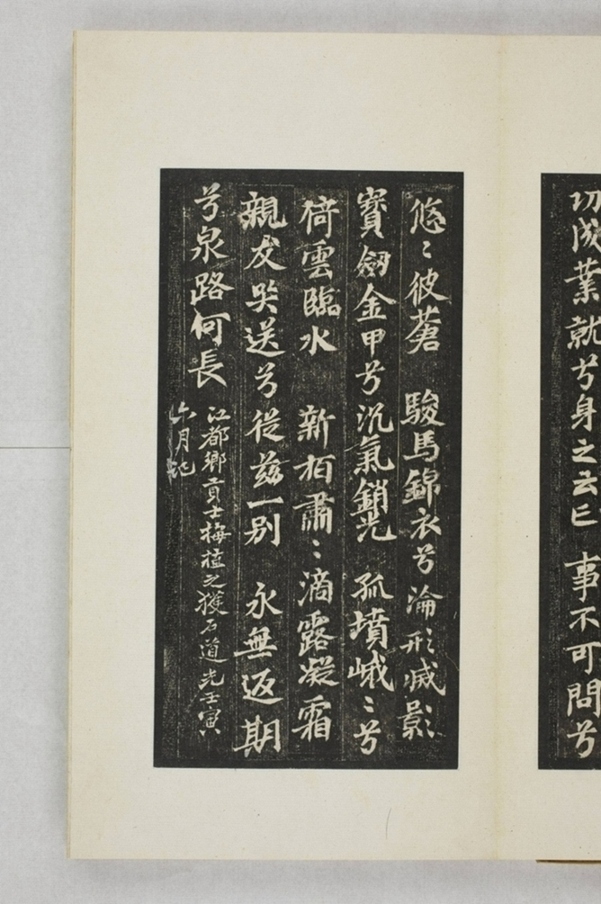 切成業就兮身之云亡　事不可問兮
悠〻彼蒼　駿馬錦衣兮淪形滅影
寳劒金甲兮沉氣銷光　孤墳峨〻兮
倚雲臨水　新栢肅〻滴露凝霜
親友哭送兮從兹一别　永無返期
兮泉路何長
江都鄉貢士梅植之獲石道光壬寅
六月記